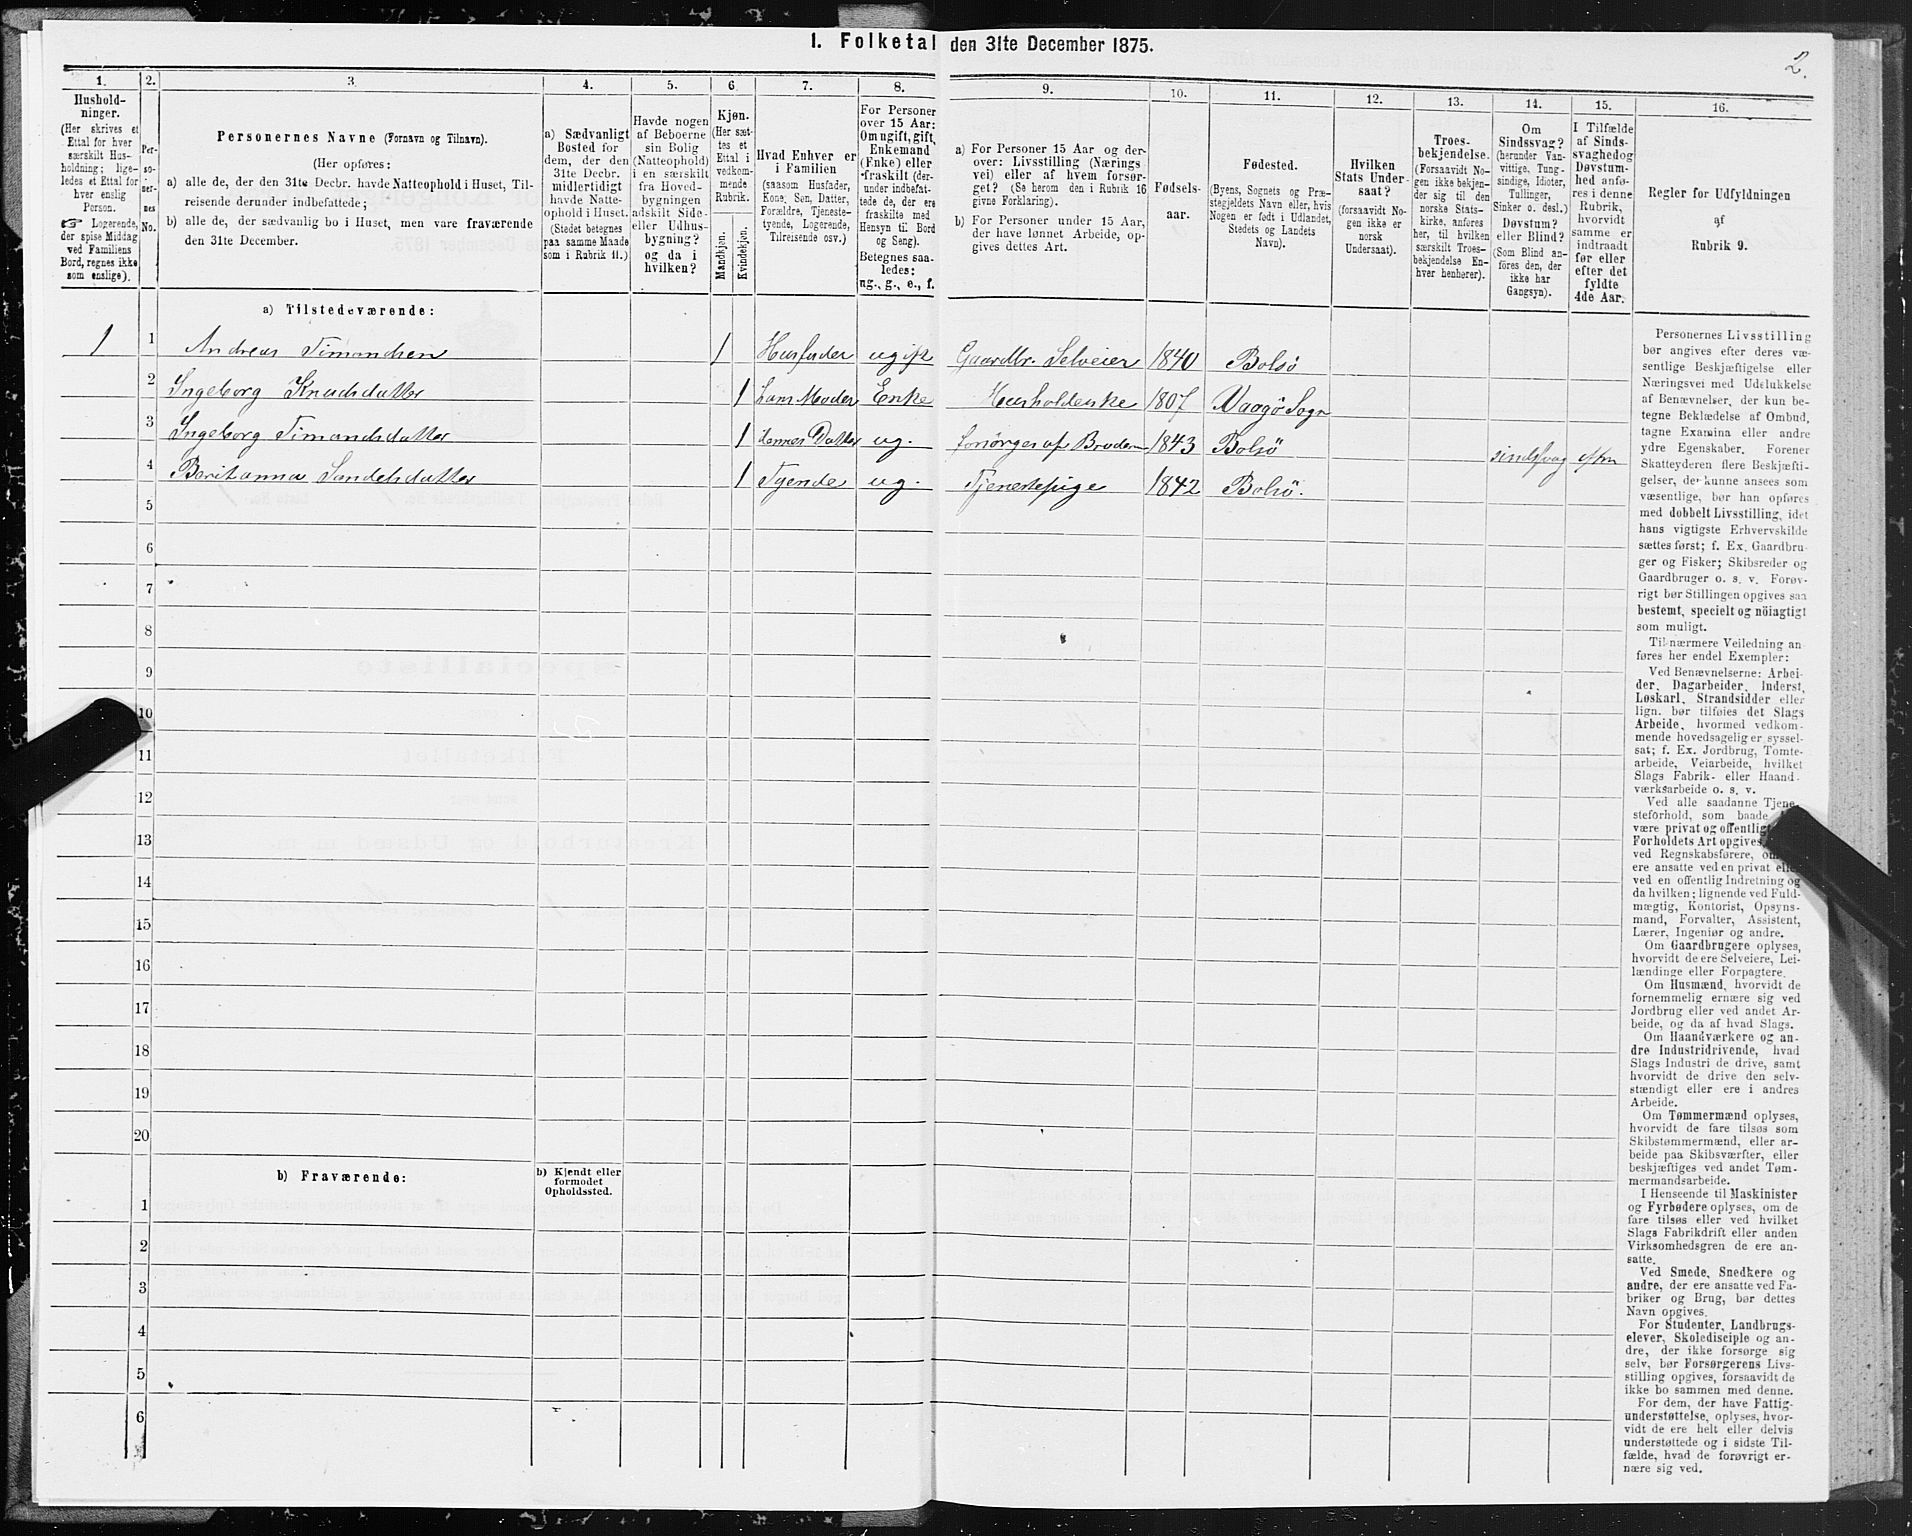 1. Folketal den 31te December 1875.
2.
1.
Hushold-
ninger.
(Her skrives et
Ettal for hver
særskilt Hus-
holdning; lige-
ledes et Ettal for
hver enslig
Person.
☞ Logerende,
der spise Middag
ved Familiens
Bord, regnes ikke
som enslige).
2.
Per-
so-
ner-
nes
No.
3.
Personernes Navne (Fornavn og Tilnavn).
(Her opføres:
a) alle de, der den 31te Decbr. havde Natteophold i Huset, Til-
reisende derunder indbefattede;
b) alle de, der sædvanlig bo i Huset, men vare fraværende
den 31te December.
4.
a) Sædvanligt
Bosted for
dem, der den
31te Decbr.
midlertidigt
havde Natte-
ophold i Huset.
(Stedet betegnes
paa samme Maade
som i Rubrik 11.)
5.
Havde nogen
af Beboerne
sin Bolig
(Natteophold)
i en særskilt
fra Hoved-
bygningen
adskilt Side-
eller Udhus-
bygning?
og da i
hvilken?
6.
Kjøn.
(Her sæt-
tes et
Ettal i
vedkom-
mende
Rubrik.
Mandkjøn.
Kvindekjøn.
7.
Hvad Enhver er
i Familien
(saasom Husfader,
Kone, Søn, Datter,
Forældre, Tjeneste-
tyende, Logerende,
Tilreisende osv.)
8.
For Personer
over 15 Aar:
Om ugift, gift,
Enkemand
(Enke) eller
fraskilt (der-
under indbefat-
tede de, der ere
fraskilte med
Hensyn til Bord
og Seng).
Betegnes saa-
ledes:
ug., g., e., f.
9.
a) For Personer 15 Aar og der-
over: Livsstilling (Nærings-
vei) eller af hvem forsør-
get? (Se herom den i Rubrik 16
givne Forklaring).
b) For Personer under 15 Aar,
der have lønnet Arbeide, op-
gives dettes Art.
10.
Fødsels-
aar.
11.
Fødested.
(Byens, Sognets og Præ-
stegjeldets Navn eller, hvis
Nogen er født i Udlandet,
Stedets og Landets
Navn).
12.
Hvilken
Stats Under-
saat?
(forsaavidt No-
gen ikke er
norsk
Undersaat).
13.
Troes-
bekjendelse.
(Forsaavidt No-
gen ikke bekjen-
der sig til den
norske Stats-
kirke, anføres
her, til hvilken
særskilt Troes-
bekjendelse En-
hver henhører).
14.
Om
Sindssvag?
(herunder Van-
vittige, Tung-
sindige, Idioter,
Tullinger,
Sinker o. desl.)
Døvstum?
eller Blind?
(Som Blind an-
føres den, der
ikke har
Gangsyn).
15.
I Tilfælde
af Sinds-
svaghed og
Døvstum-
hed anfø-
res i denne
Rubrik,
hvorvidt
samme er
indtraadt
før eller
efter det
fyldte
4de Aar.
16.
Regler for Udfyldningen
af
Rubrik 9.
a) Tilstedeværende:
1 1 Andreas Simondsen 1 Husfader ugift Gaardbr. Selveier 1840 Bolsø
2 Ingeborg Knudsdatter 1 hans Moder Enke Husholderske 1807 Vaagø Sogn
3 Ingeborg Simondsdatter 1 dennes Datter ug. forsørges af Broderen 1843 Bolsø sindssvag efter
4 Beritanna Sandelsdatter 1 Tyende ug. Tjenestepige 1842 Bolsø.
5
6
7
8
9
10
11
12
13
14
15
16
17
18
19
20
b) Fraværende:
b) Kjendt eller
formodet
Opholdssted.
1
2
3
4
5
6
Personernes Livsstilling
bør angives efter deres væ-
sentlige Beskjæftigelse eller
Næringsvei med Udelukkelse
af Benævnelser, der kun be-
tegne Beklædelse af Ombud,
tagne Examina eller andre
ydre Egenskaber. Forener
Skatteyderen flere Beskjæfti-
gelser, der kunne ansees som
væsentlige, bør han opføres
med dobbelt Livsstilling, idet
hans vigtigste Erhvervskilde
sættes først; f. Ex. Gaardbru-
ger og Fisker; Skibsreder og
Gaardbruger o. s. v. Forøv-
rigt bør Stillingen opgives saa
bestemt, specielt og nöiagtigt
som muligt.
Til nærmere Veiledning an-
føres her endel Exempler:
Ved Benævnelserne: Arbei-
der, Dagarbeider, Inderst,
Løskarl, Strandsidder eller
lign. bør tilføies det Slags
Arbeide, hvormed vedkom-
mende hovedsagelig er syssel-
sat; f. Ex. Jordbrug, Tomte-
arbeide, Veiarbeide, hvilket
Slags Fabrik- eller Haand-
værksarbeide o. s. v.
Ved alle saadanne Tjene-
steforhold, som baade
være privat og offentligt
Forholdets Art opgives,
ved Regnskabsførere, om
ere ansatte ved en privat eller
ved en offentlig Indretning og
da hvilken; lignende ved Fuld-
mægtig, Kontorist, Opsyns-
mand, Forvalter, Assistent,
Lærer, Ingeniør og andre.
Om Gaardbrugere oplyses,
hvorvidt de ere Selveiere, Lei-
lændinge eller Forpagtere.
Om Husmænd, hvorvidt de
fornemmelig ernære sig ved
Jordbrug eller ved andet Ar-
beide, og da af hvad Slags.
Om Haandværkere og an-
dre Industridrivende, hvad
Slags Industri de drive, samt
hvorvidt de drive den selv-
stændigt eller ere i andres
Arbeide.
Om Tømmermænd oplyses,
hvorvidt de fare tilsøs som
Skibstømmermænd, eller ar-
beide paa Skibsværfter, eller
beskjæftiges ved andet Tøm-
mermandsarbeide.
I Henseende til Maskinister
og Fyrbødere oplyses, om de
fare tilsøs eller ved hvilket
Slags Fabrikdrift eller anden
Virksomhedsgren de ere an-
satte.
Ved Smede, Snedkere og
andre, der ere ansatte ved Fa-
briker og Brug, bør dettes
Navn opgives.
For Studenter, Landbrugs-
elever, Skoledisciple og an-
dre, der ikke forsørge sig
selv, bør Forsørgerens Livs-
stilling opgives, forsaavidt de
ikke bo sammen med denne.
For dem, der have Fattig-
understøttelse, oplyses, hvor-
vidt de ere helt eller delvis
understøttede og i sidste Til-
fælde, hvad de forøvrigt er-
nære sig ved.